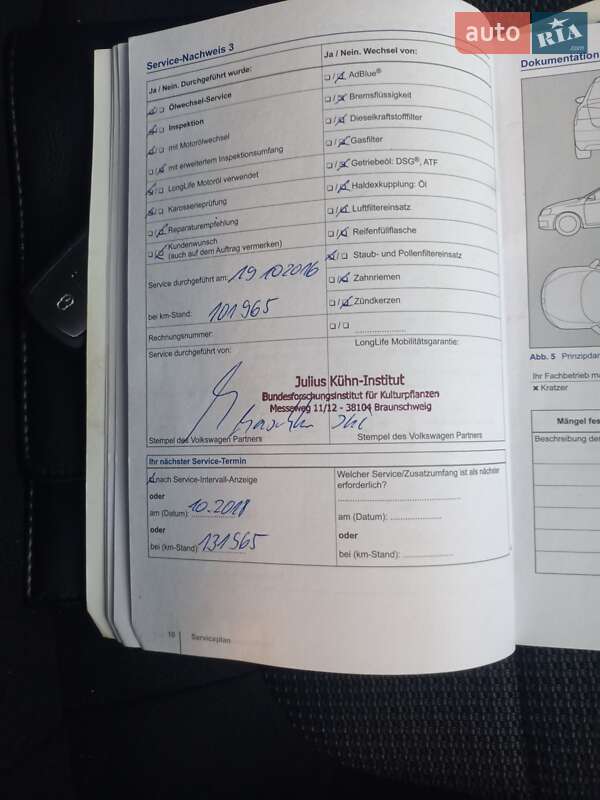 auto RIA.com
Service-Nachweis 3
Ja / Nein. Durchgeführt wurde:
Ölwechsel-Service
Inspektion
mit Motorölwechsel
mit erweitertem Inspektionsumfang
LongLife Motoröl verwendet
Karosserieprüfung
Reparaturempfehlung
Kundenwunsch
(auch auf dem Auftrag vermerken)
Service durchgeführt am: 19 10 2016
bei km-Stand: 101 965
Rechnungsnummer:
Service durchgeführt von:
Ja / Nein. Wechsel von:
AdBlue®
Bremsflüssigkeit
Dieselkraftstofffilter
Gasfilter
Getriebeöl: DSG®, ATF
Haldexkupplung: Öl
Luftfiltereinsatz
Reifenfüllflasche
Staub- und Pollenfiltereinsatz
Zahnriemen
Zündkerzen
LongLife Mobilitätsgarantie:
Julius Kühn-Institut
Bundesforschungsinstitut für Kulturpflanzen
Messeweg 11/12 - 38104 Braunschweig
Stempel des Volkswagen Partners
Stempel des Volkswagen Partners
Ihr nächster Service-Termin
nach Service-Intervall-Anzeige
oder
am (Datum): 10.2018
oder
bei (km-Stand): 131965
Welcher Service/Zusatzumfang ist als nächster
erforderlich?
am (Datum):
oder
bei (km-Stand):
16 Serviceplan
Dokumentation
Abb. 5 Prinzipdar
Ihr Fachbetrieb ma
× Kratzer
Mängel fes
Beschreibung der